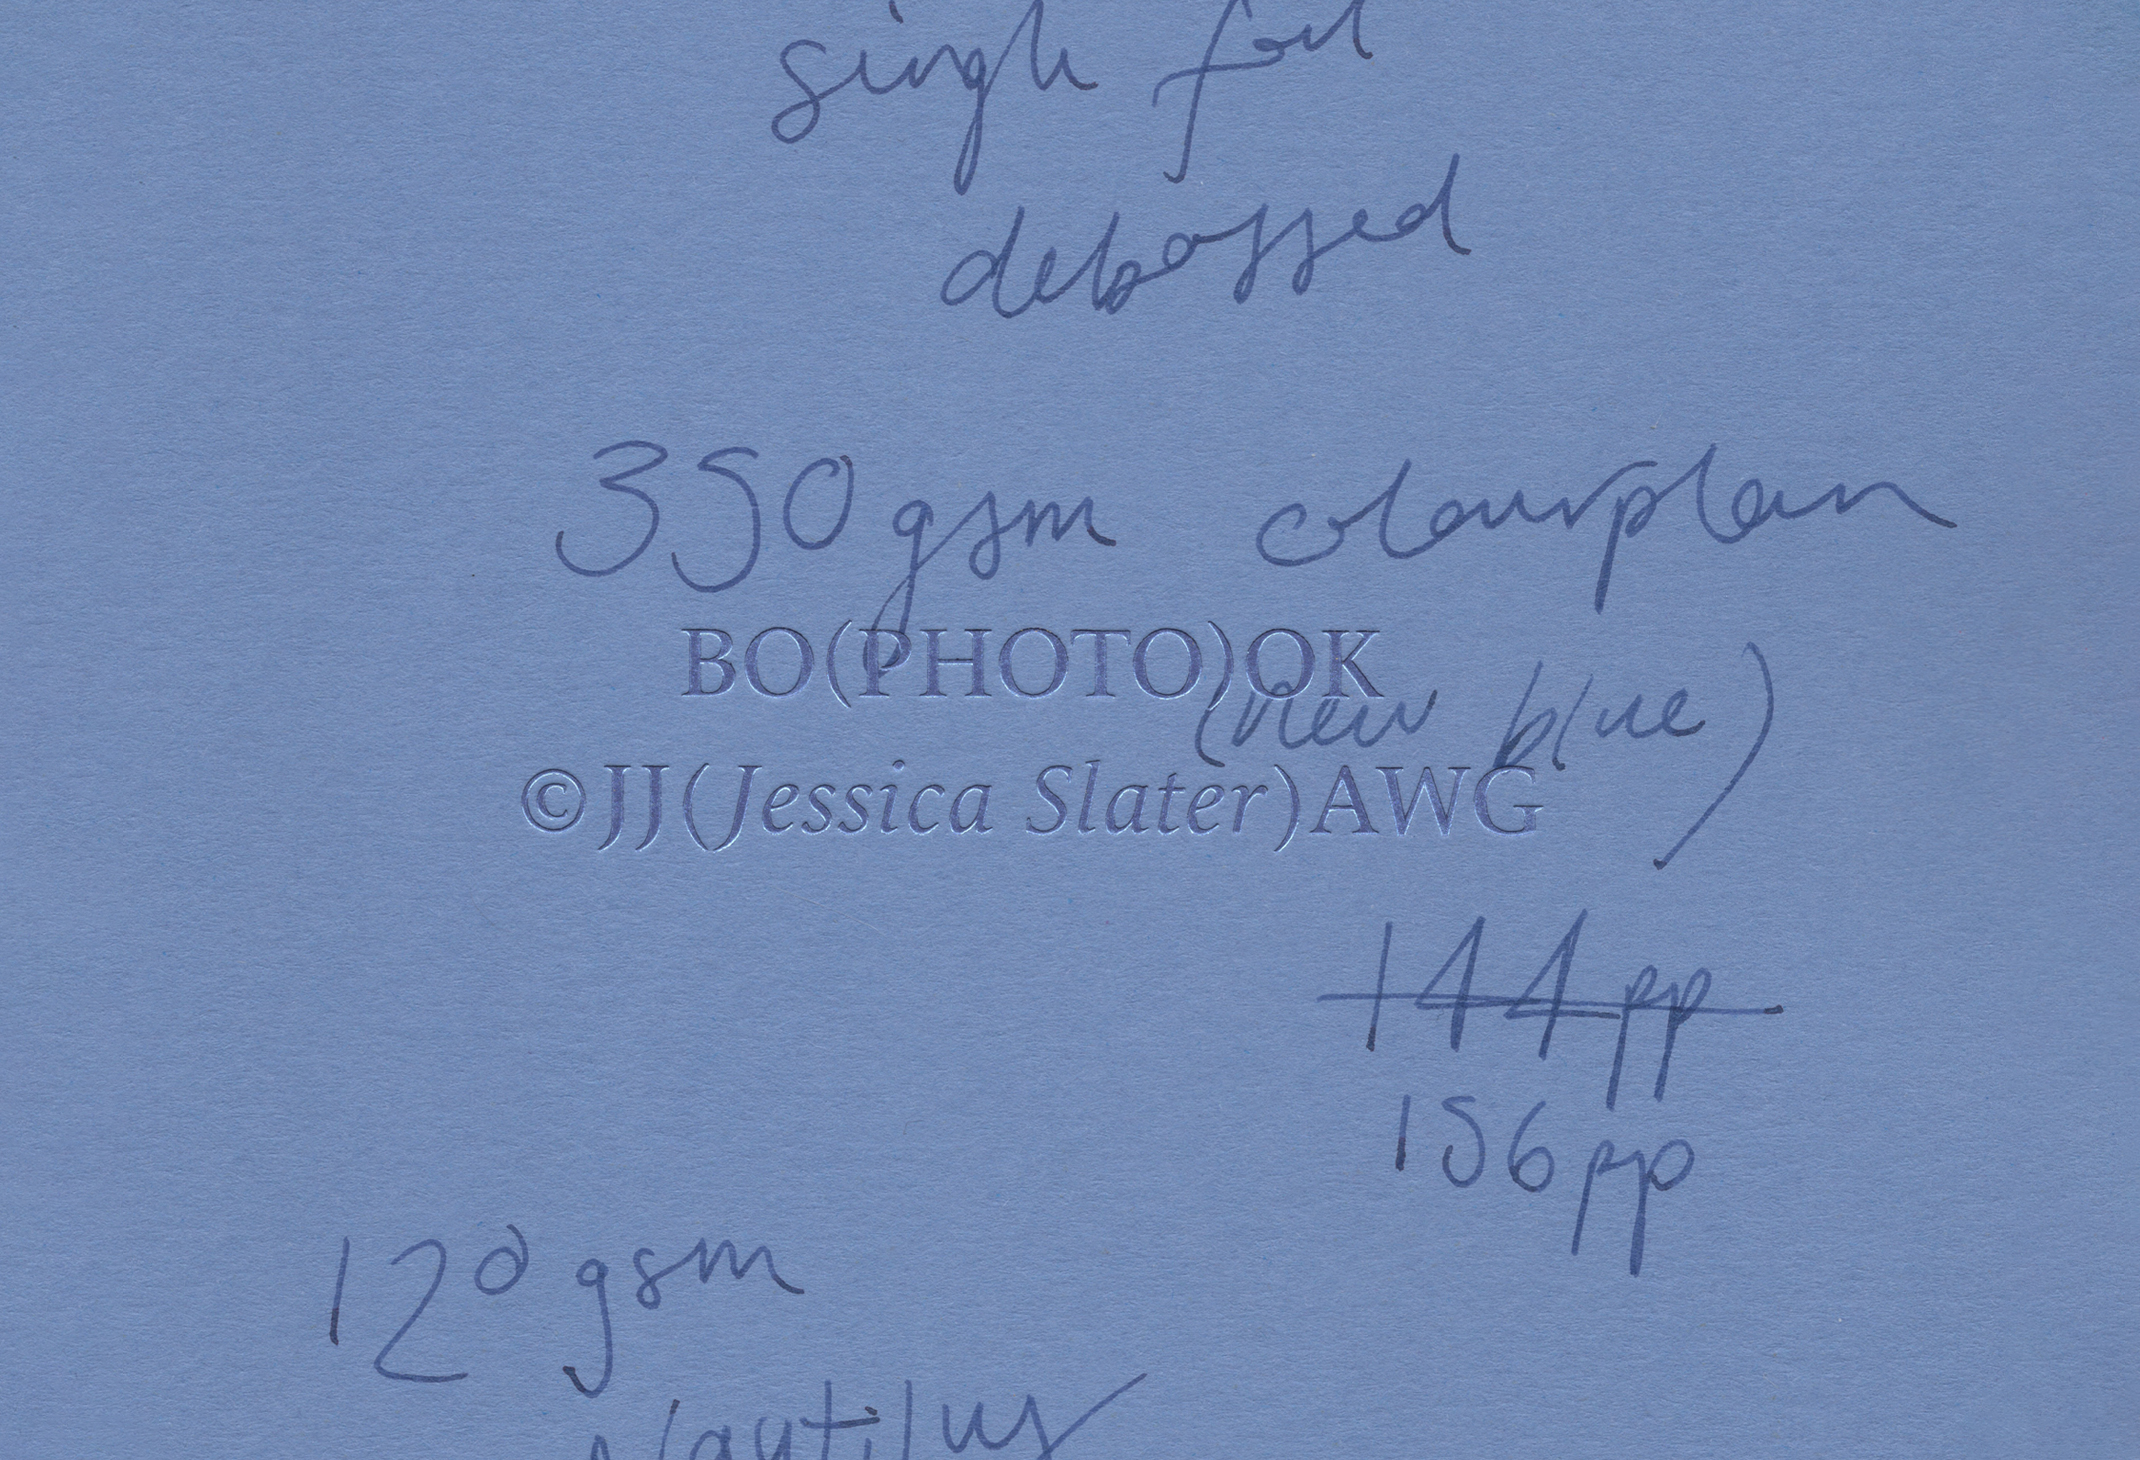 single foil
debossed
350gsm colourplan
BO(PHOTO)OK
(new blue)
©JJ(Jessica Slater)AWG
144pp
156pp
120gsm
Nautilus